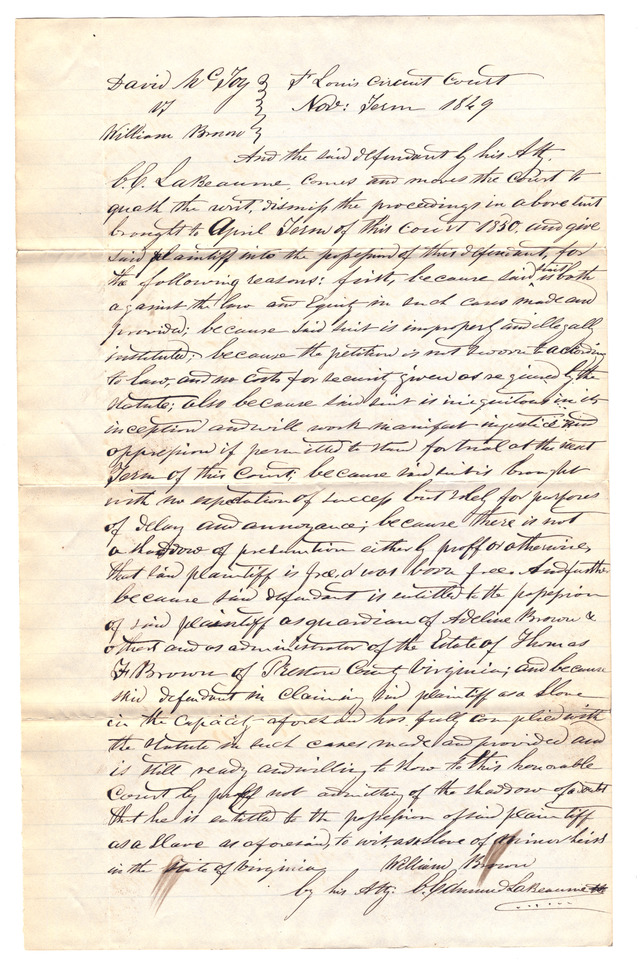 David McFoy } St Louis Circuit Court
vs } Nov: Term 1849
William Brown }
And the said defendant by his Atty.
C. E. LaBeaume, comes and moves the court to
quash the writ, dismiss the proceedings in above suit
brought to April Term of this Court 1850. and give
said plaintiff into the possession of this defendant, for
the following reasons: first, because said suit is both
against the law and Equity in such cases made and
provided; because said suit is improperly and illegally
instituted; because the petition is not sworn to according
to law, and no costs for security given as required by the
statute; also because said suit is iniquitous in its
inception and will work manifest injustice and
oppression if permitted to stand for trial at the next
Term of this Court; because said suit is brought
with no expectation of success but solely for purposes
of delay and annoyance; because there is not
a shaddow of presumtion either by proff or otherwise,
that said plaintiff is free, or was born free. And further
because said defendant is entitled to the possession
of said plaintiff as guardian of Adeline Brown &
others and as administrator of the Estate of Thomas
F. Brown of Preston County Virginia; and because
said defendant in claiming said plaintiff as a Slave
in the capacity aforesaid has fully complied with
the Statute in such cases made and provided and
is still ready and willing to show to this honorable
Court by proff not admitting of the shadow of a doubt
that he is entitled to the possession of said plaintiff
as a Slave as aforesaid, to wit as a slave of minor heirs
in the State of Virginia William Brown
by his Atty. C. Edmund LaBeaume